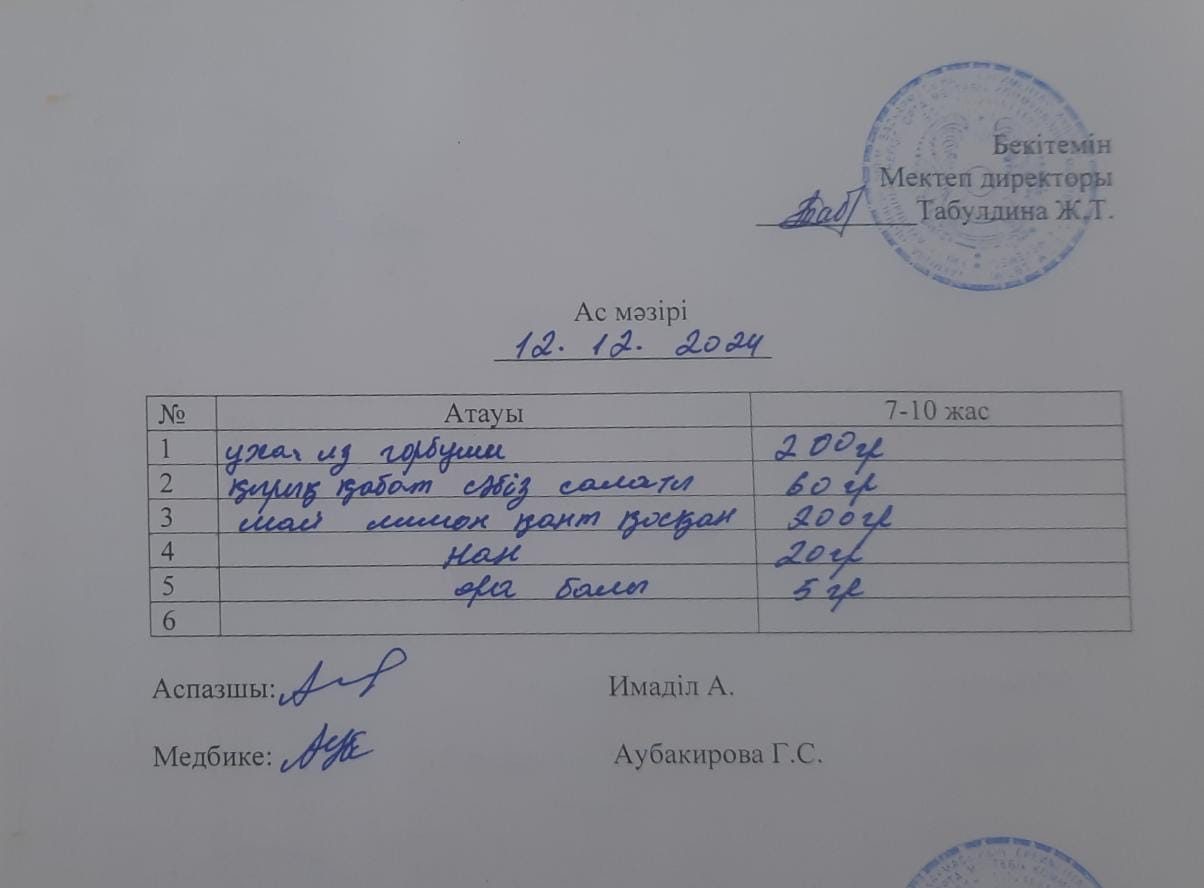 Бекітемін
Мектеп директоры
Табулдина Ж.Т.
Ас мәзірі
12. 12. 2024
№ Атауы 7-10 жас
1 уха из горбуши 200гр
2 қырық қабат сәбіз салаты 60 гр
3 шай лимон қант қосқан 200гр
4 нан 20гр
5 ара балы 5 гр
6
Аспазшы: Имаділ А.
Медбике: Аубакирова Г.С.